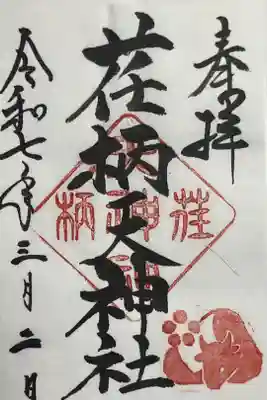 奉拝
荏柄天神社
令和七年三月二日
荏柄天神社